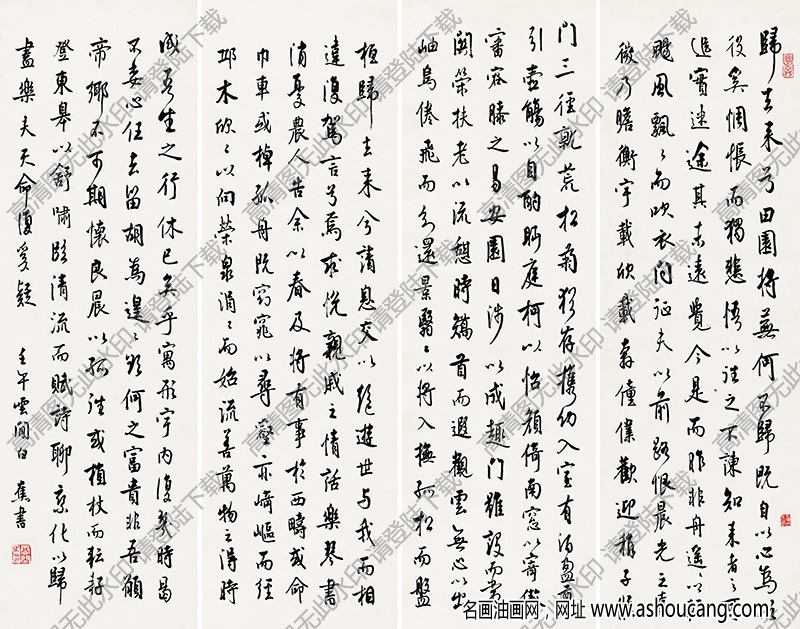 歸去來兮田園將蕪何不歸既自以心為形
役奚惆悵而獨悲悟以往之不諫知來者之可
追實迷途其未遠覺今是而昨非舟遙々以
颺風飄々而吹衣問征夫以前路恨晨光之熹
微乃瞻衡宇載欣載奔僮僕歡迎稚子候
門三徑就荒松菊猶存攜幼入室有酒盈
引壺觴以自酌眄庭柯以怡顏倚南窗以寄傲
審容膝之易安園日涉以成趣門雖設而常
關策扶老以流憩時矯首而遐觀雲無心以出
岫鳥倦飛而知還景翳々以將入撫孤松而盤
桓歸去來兮請息交以絕遊世与我而相
違復駕言兮焉求悅親戚之情話樂琴書
消憂農人告余以春及將有事於西疇或命
巾車或棹孤舟既窈窕以尋壑亦崎嶇而經
邱木欣々以向榮泉涓々而始流善萬物之得時
感吾生之行休已矣乎寓形宇內復幾時曷
不委心任去留胡為遑々欲何之富貴非吾願
帝鄉不可期懷良晨以孤往或植杖而耘耔
登東皋以舒嘯臨清流而賦詩聊乘化以歸
盡樂夫天命復奚疑 壬午雲間白蕉書
高清图无此水印 请登陆下载
名画油画网，网址 www.ashoucang.com